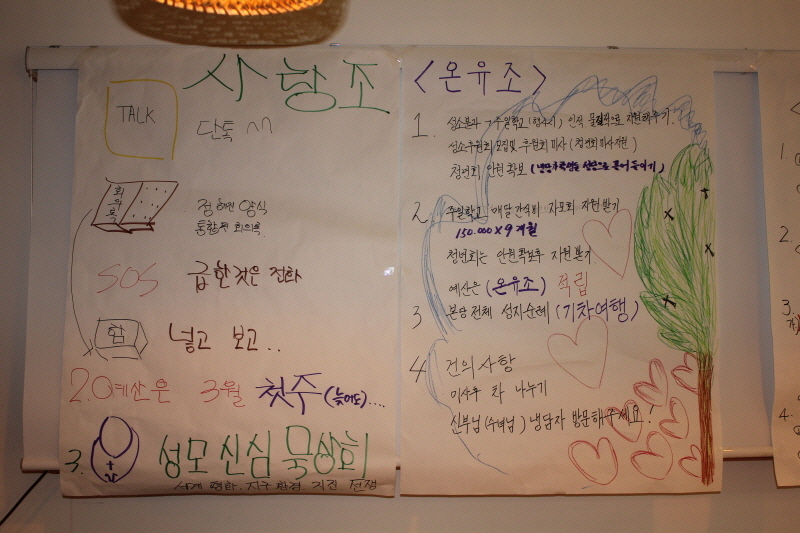 사랑조
TALK
단톡 ^^
회의록
정해진 양식
통합된 회의록
SOS 급한것은 전화
함 넣고 보고..
2.0예산은 3월 첫주 (늦어도)....
3. 성모신심 묵상회
세계 평화. 지구환경. 지진. 전쟁
<온유조>
1. 성소분과 → 주일학교 (청수기) 인적 물질적으로 지원해주기.
성소후원회 모집및 후원회미사 (첫번회미사지원)
청년회 인원확보
2. 주일학교 매달 간식비 자모회 지원받기
150.000 X 9개월
청년회는 인원확보후 지원받기
예산은 (온유조) 적립
3 본당전체 성지순례 (기차여행)
4 건의사항
미사후 차 나누기
신부님 (수녀님) 냉담자 방문해주세요!
1.
2.
3.
4.